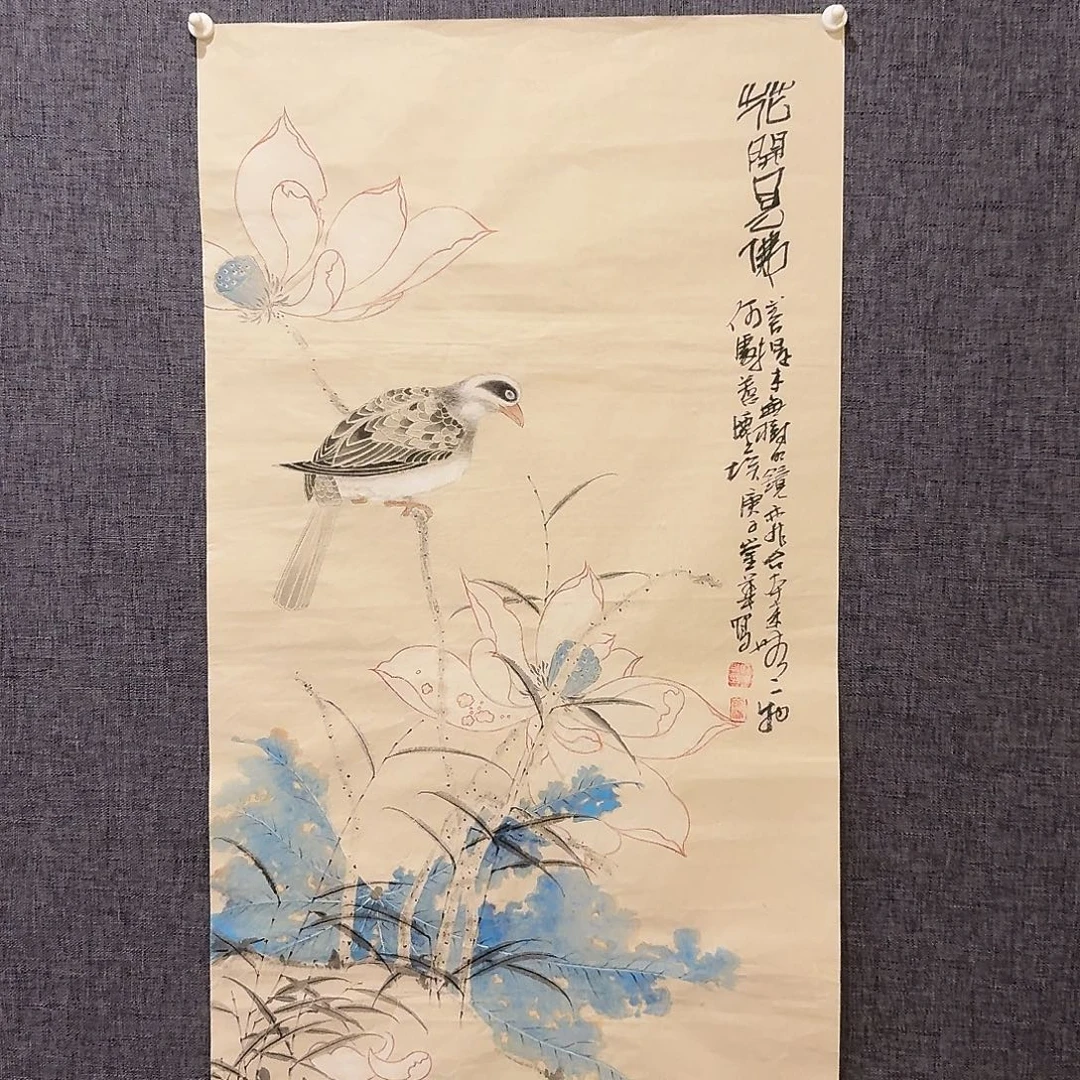 花開見佛
菩提本無樹明鏡亦非台本来無一物
何處惹塵埃庚子華寫